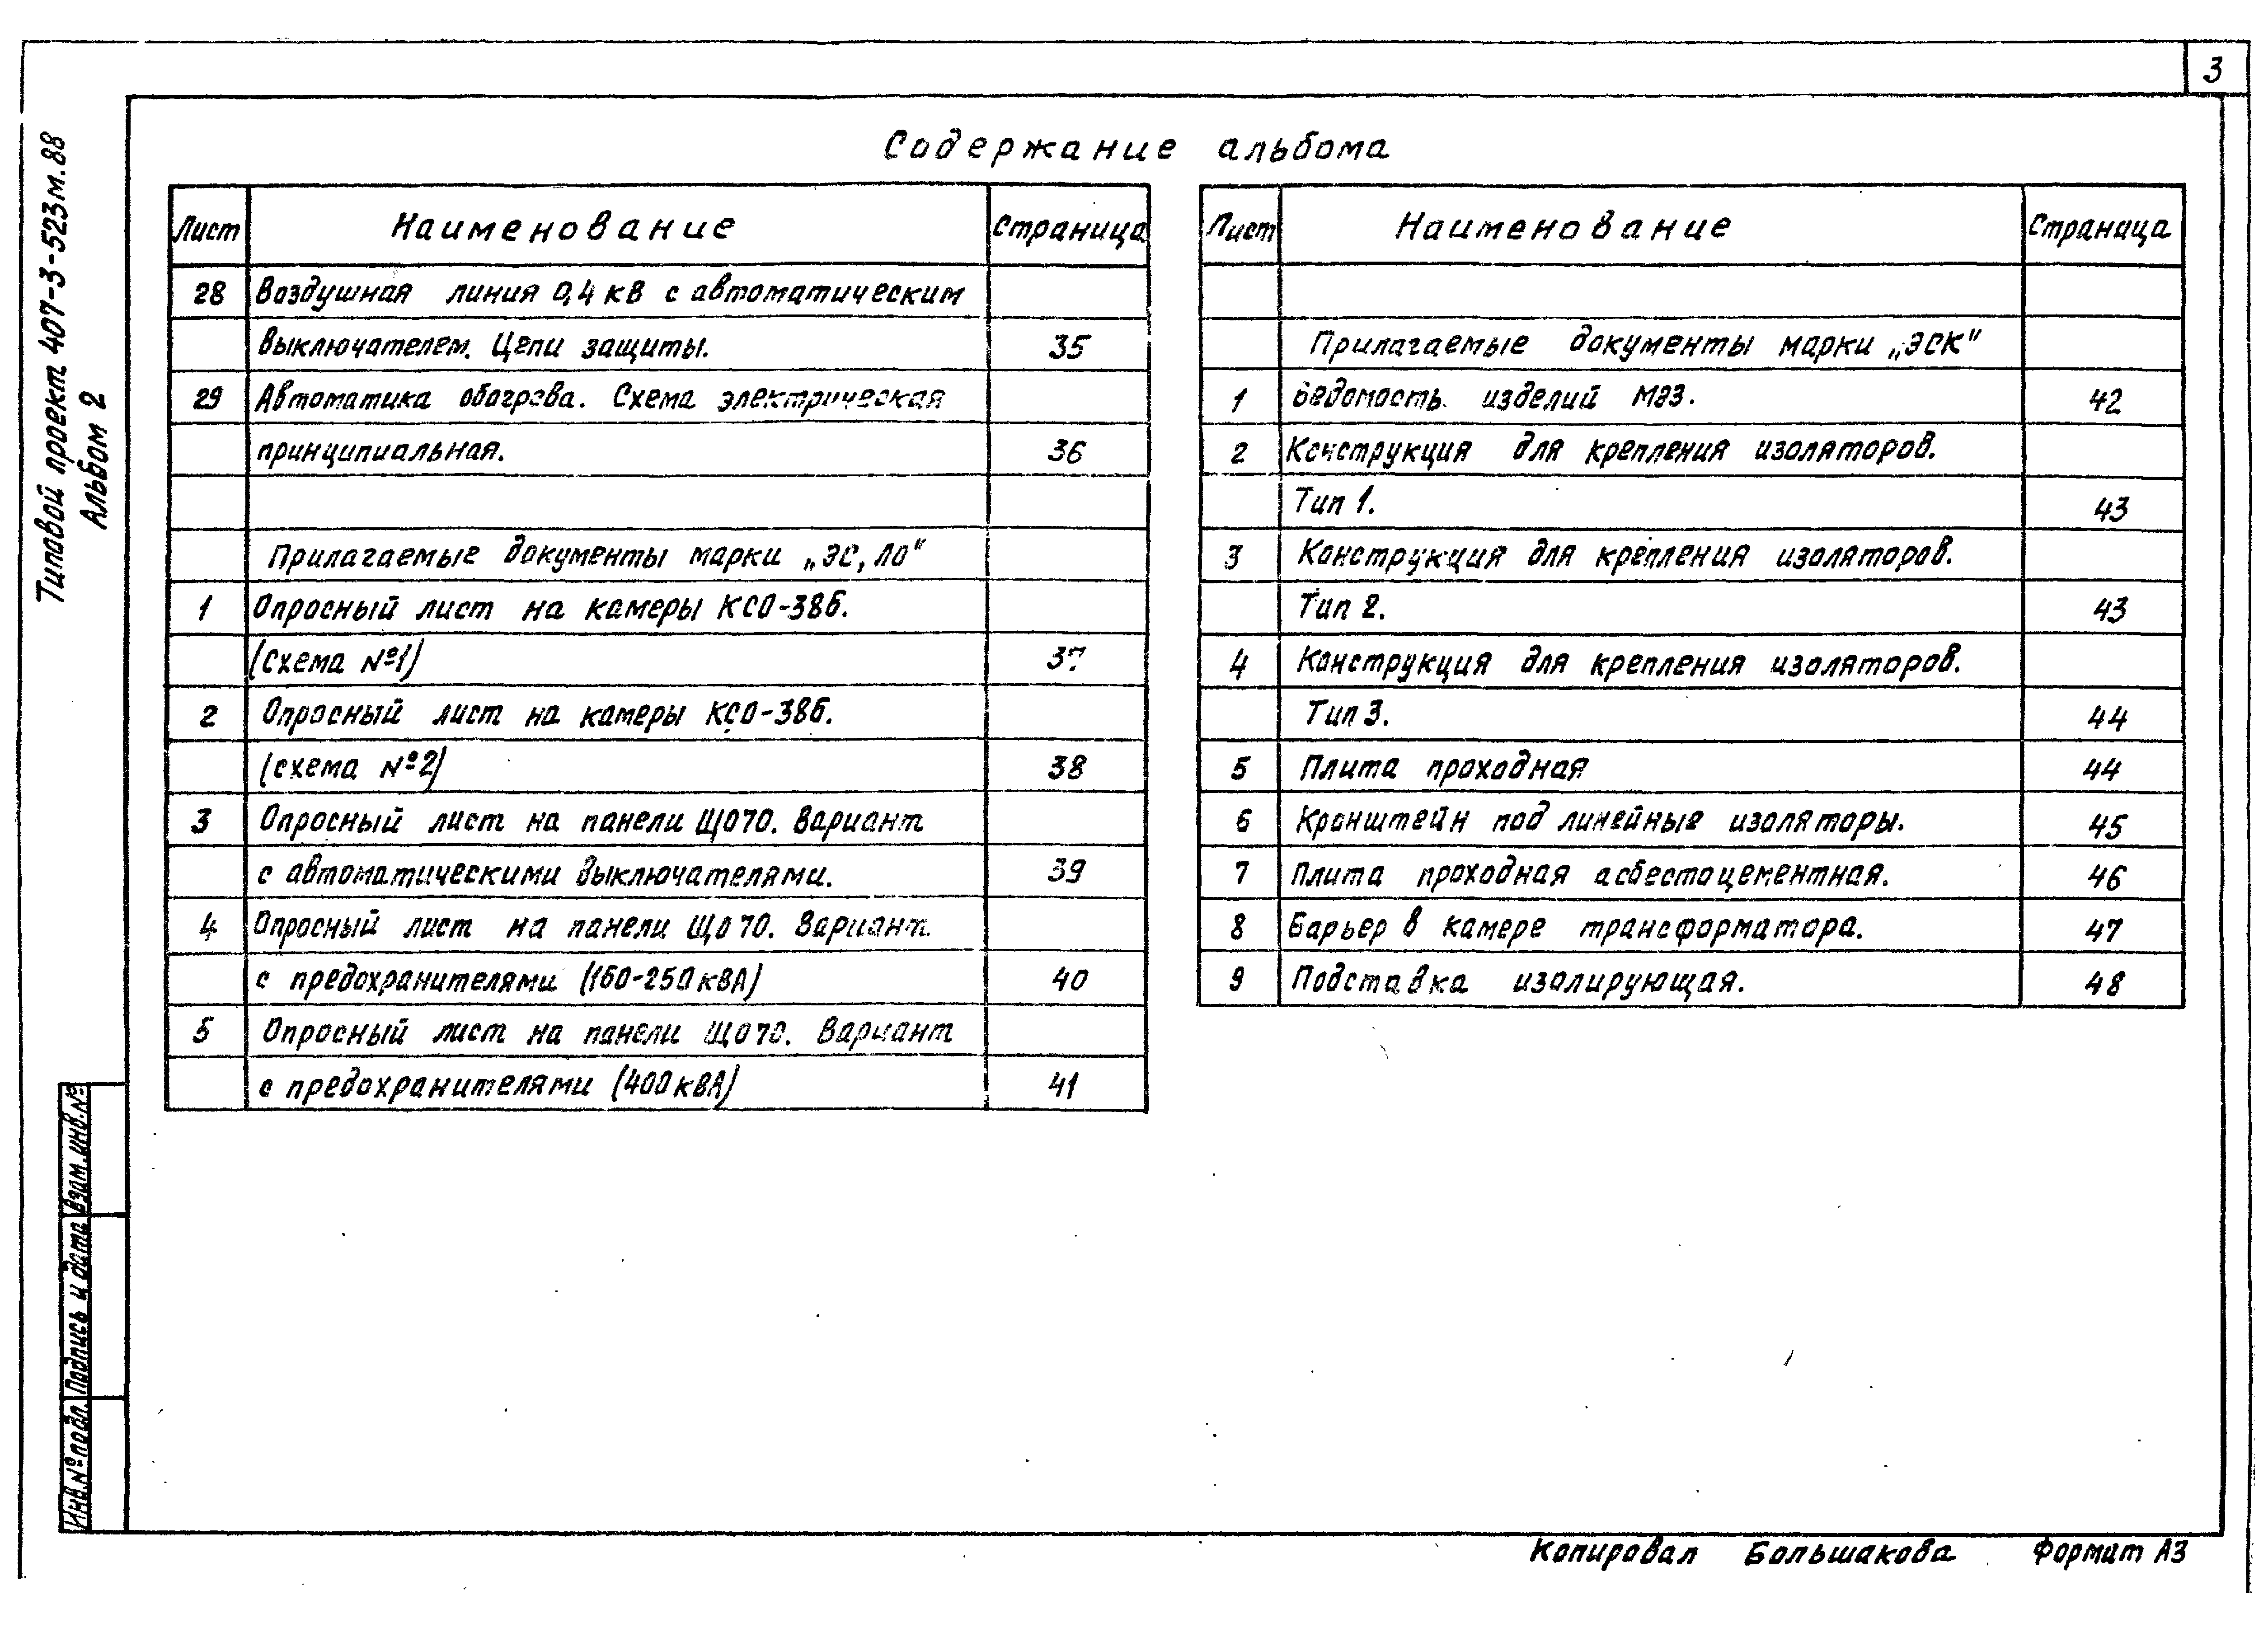 3
Типовой проект 407-3-523м.88
Альбом 2
Содержание альбома
Лист Наименование Страница
28 Воздушная линия 0,4 кВ с автоматическим
выключателем. Цепи защиты. 35
29 Автоматика обогрева. Схема электрическая
принципиальная. 36
Прилагаемые документы марки „ЭС, ЛО"
1 Опросный лист на камеры КСО-386.
(Схема №1) 37
2 Опросный лист на камеры КСО-386.
(схема №2) 38
3 Опросный лист на панели ЩО70. Вариант
с автоматическими выключателями. 39
4 Опросный лист на панели ЩО70. Вариант
с предохранителями (160-250 кВА) 40
5 Опросный лист на панели ЩО70. Вариант
с предохранителями (400 кВА) 41
Лист Наименование Страница
Прилагаемые документы марки „ЭСК"
1 Ведомость изделий МЭЗ. 42
2 Конструкция для крепления изоляторов.
Тип 1. 43
3 Конструкция для крепления изоляторов.
Тип 2. 43
4 Конструкция для крепления изоляторов.
Тип 3. 44
5 Плита проходная 44
6 Кронштейн под линейные изоляторы. 45
7 Плита проходная асбестоцементная. 46
8 Барьер в камере трансформатора. 47
9 Подставка изолирующая. 48
Инв.№подл. Подпись и дата Взам.инв.№
Копировал Большакова Формат А3